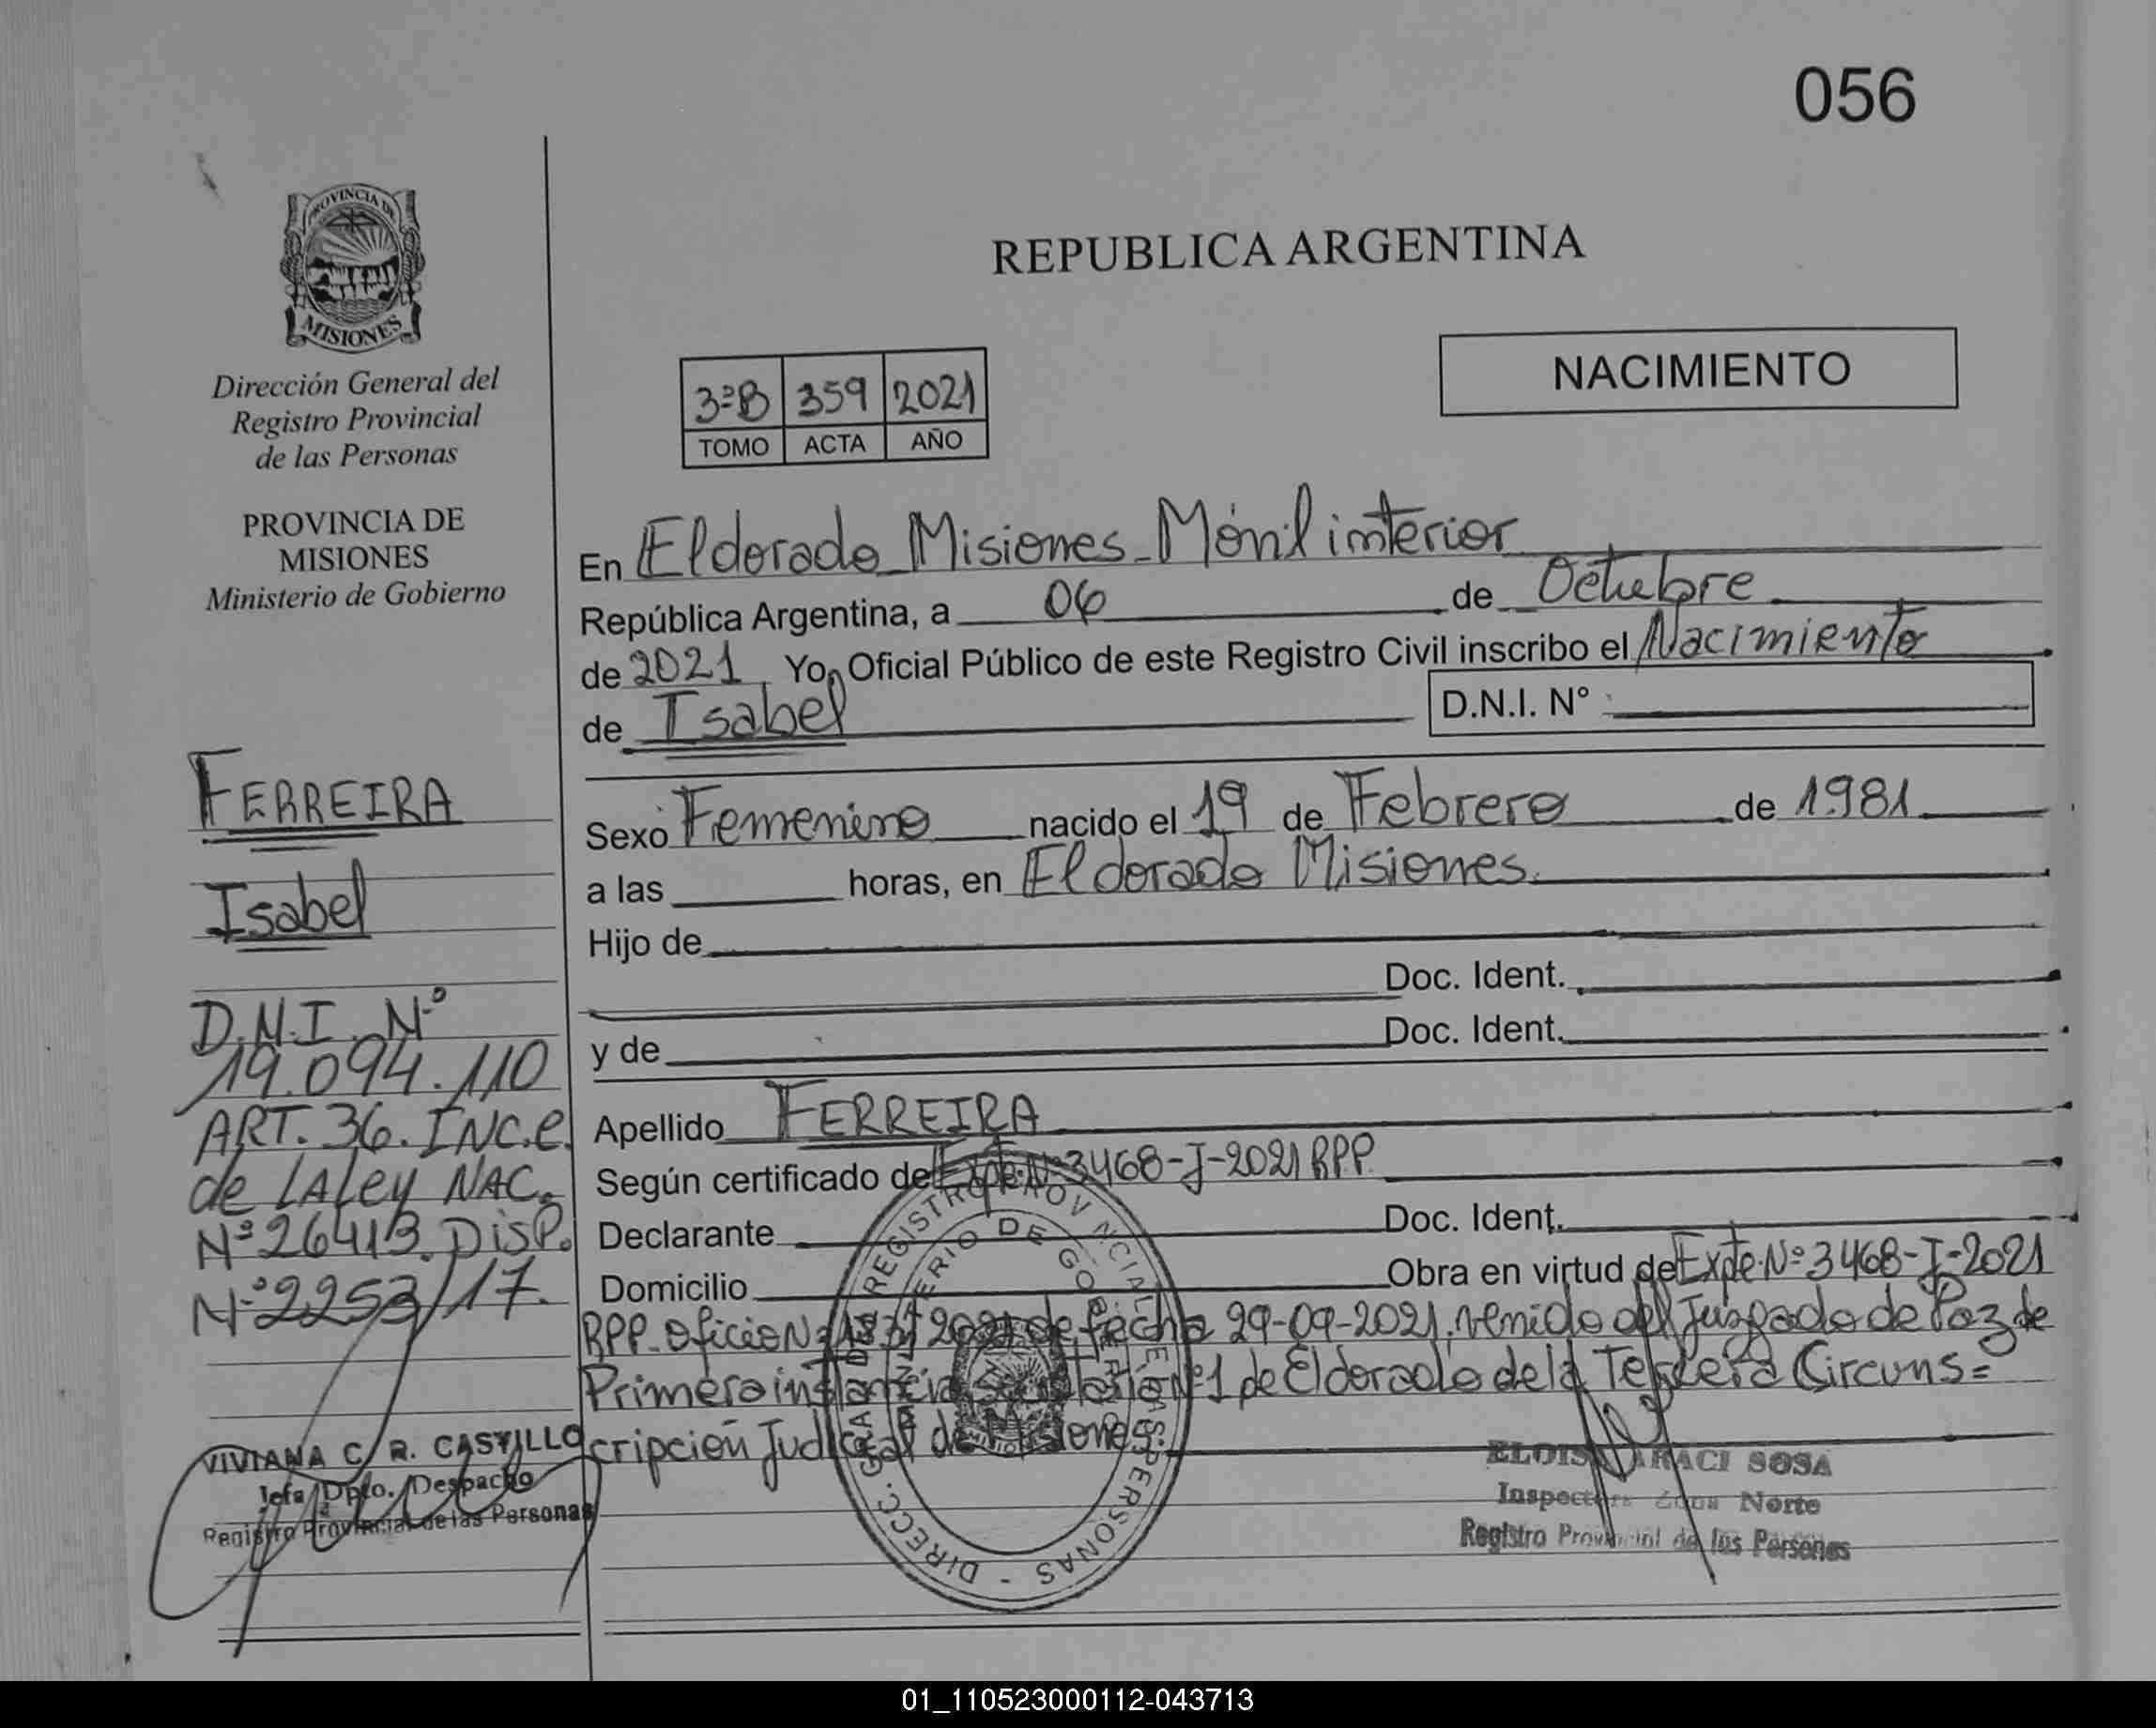 056
PROVINCIA DE
MISIONES
Dirección General del
Registro Provincial
de las Personas
PROVINCIA DE
MISIONES
Ministerio de Gobierno
FERREIRA
Isabel
D.N.I. Nº
19.094.110
ART. 36. INC.e.
de LA Ley NAC.
Nº 26413. DISP.
Nº 2253/17.
VIVIANA C. R. CASTILLO
Jefa Dpto. Despacho
Registro Provincial de las Personas
REPUBLICA ARGENTINA
NACIMIENTO
3ºB 359 2021
TOMO ACTA AÑO
En Eldorado Misiones - Móvil interior
República Argentina, a 06 de Octubre
de 2021 Yo, Oficial Público de este Registro Civil inscribo el Nacimiento
de Isabel D.N.I. Nº
Sexo Femenino nacido el 19 de Febrero de 1981
a las horas, en Eldorado Misiones.
Hijo de
Doc. Ident.
y de Doc. Ident.
Apellido FERREIRA
Según certificado de Expte. Nº 3468-J-2021 RPP.
Declarante Doc. Ident.
Domicilio Obra en virtud de Expte. Nº 3468-J-2021
RPP. Oficio Nº 2021 de fecha 29-09-2021, venido del Juzgado de Paz de
Primera instancia Nº1 de Eldorado de la Tercera Circuns=
cripción Judicial de Misiones.
DIRECC. GRAL. DEL REGISTRO PROVINCIAL DE LAS PERSONAS -
MINISTERIO DE GOBIERNO
MISIONES
ARACI SOSA
Inspectora Zona Norte
Registro Provincial de las Personas
01_110523000112-043713